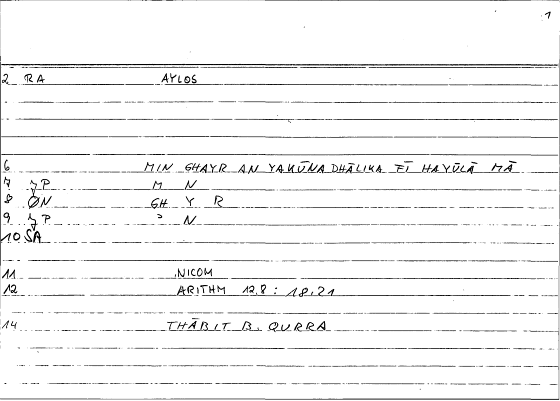 1
2 RA AYLOS
6 MIN GHAYR AN YAKŪNA DHĀLIKA FĪ HAYŪLĀ MĀ
7 P M N
8 ØN GH Y R
9 P ᵓ N
10 SA
11 NICOM
12 ARITHM 12,8 : 18,21
14 THĀBIT B. QURRA